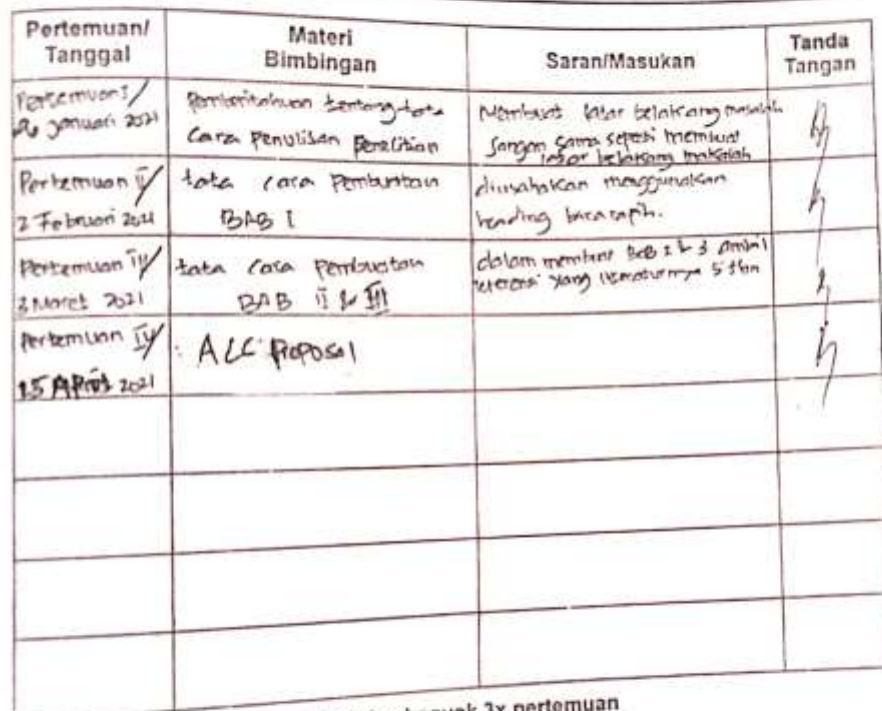 Pertemuan/
Tanggal
Materi
Bimbingan
Saran/Masukan
Tanda
Tangan
Pertemuan I/
26 Januari 2021
Pemberitahuan tentang tata
Cara Penulisan Penelitian
Membuat latar belakang masalah
Jangan sama seperti membuat
latar belakang makalah
Pertemuan II/
2 Februari 2021
tata cara Pembuatan
BAB I
diusahakan menggunakan
heading
Pertemuan
3 Maret 2021
tata cara Pembuatan
BAB II & III
dalam membuat BAB 2 & 3
yang 5 thn
Pertemuan IV/
15 April 2021
ACC Proposal
3x pertemuan